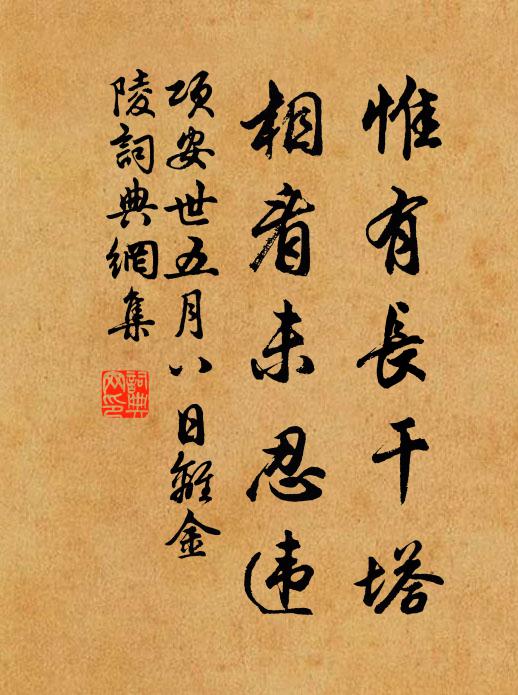 惟有長干塔
相看未忍违
項安世五月八日離金
陵詞典網集
詞典
网印